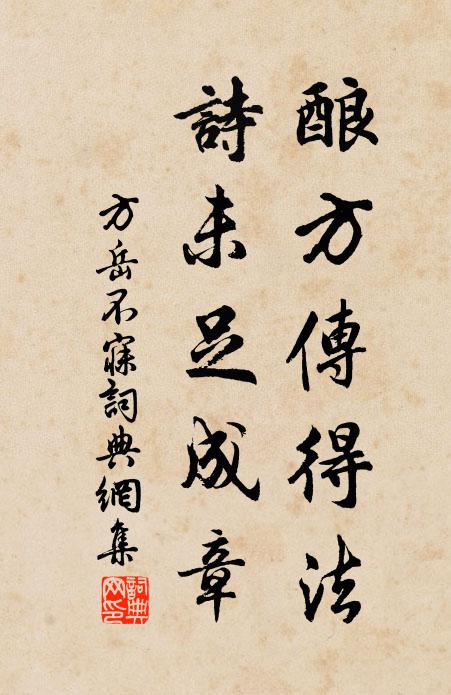 酿方傳得法
詩未足成章
方岳不寐詞典網集
詞典网印